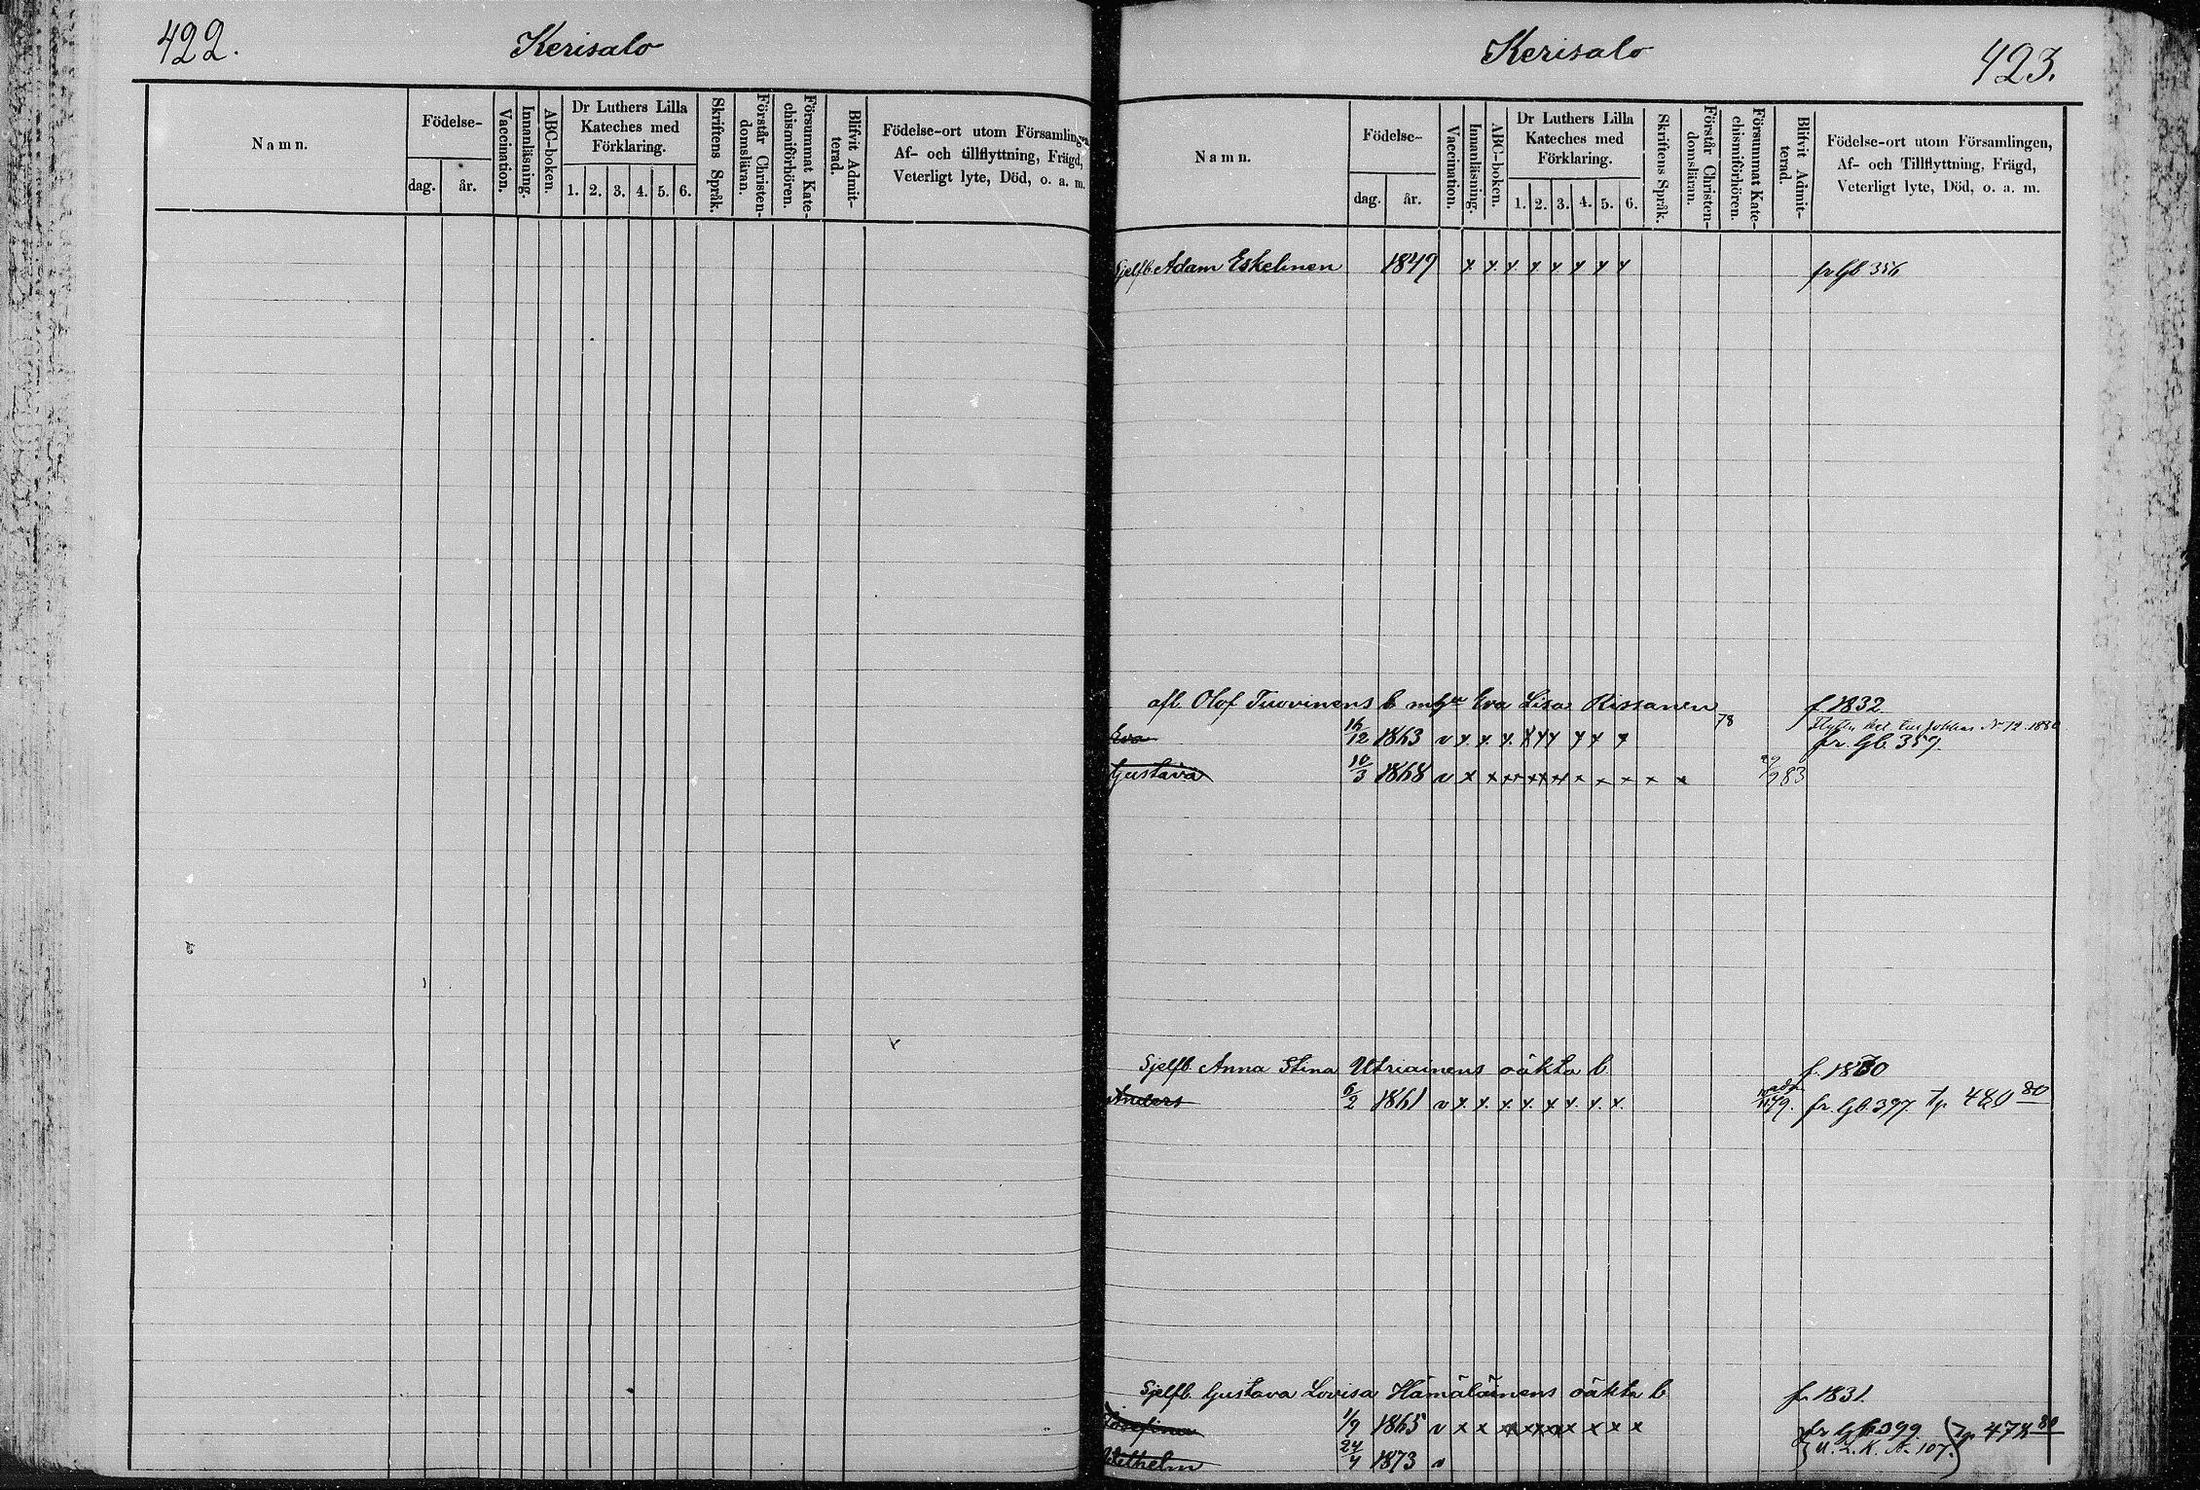 422.
Kerisalo
Namn.
Födelse-
dag.
år.
Vaccination.
Innanläsning.
ABC-boken.
Dr Luthers Lilla
Kateches med
Förklaring.
1. 2. 3. 4. 5. 6.
Skriftens Språk.
Förstår Christen-
domsläran.
Försummat Kate-
chismiförhören.
Blifvit Admit-
terad.
Födelse-ort utom Församlingen,
Af- och tillflyttning, Frägd,
Veterligt lyte, Död, o. a. m.
Kerisalo
423.
Namn.
Födelse-
dag.
år.
Vaccination.
Innanläsning.
ABC-boken.
Dr Luthers Lilla
Kateches med
Förklaring.
1. 2. 3. 4. 5. 6.
Skriftens Språk.
Förstår Christen-
domsläran.
Försummat Kate-
chismiförhören.
Blifvit Admit-
terad.
Födelse-ort utom Församlingen,
Af- och Tillflyttning, Frägd,
Veterligt lyte, Död, o. a. m.
Sjelfb. Adam Eskelinen 1849 x x x x x x x x fr Gb 356
afl. Olof Tuovinens b. m Eva Lisa Rissanen f. 1832
Eva 16/12 1863 v x x x x x x x x x 78 N 12. 1880
fr. Gb. 359.
Gustava 10/3 1868 v x x x x x x x x x x 83
Sjelfb. Anna Stina Utriainens oäkta b. f. 1830
Anders 6/2 1861 v x x x x x x x x 79. fr. Gb. 397. 480 80
Sjelfb. Gustava Lovisa Hämäläinens oäkta b f. 1831.
Josefina 1/9 1865 v x x x x x x x x x fr Gb 399
Wilhelm 24/4 1873 v N. 107.